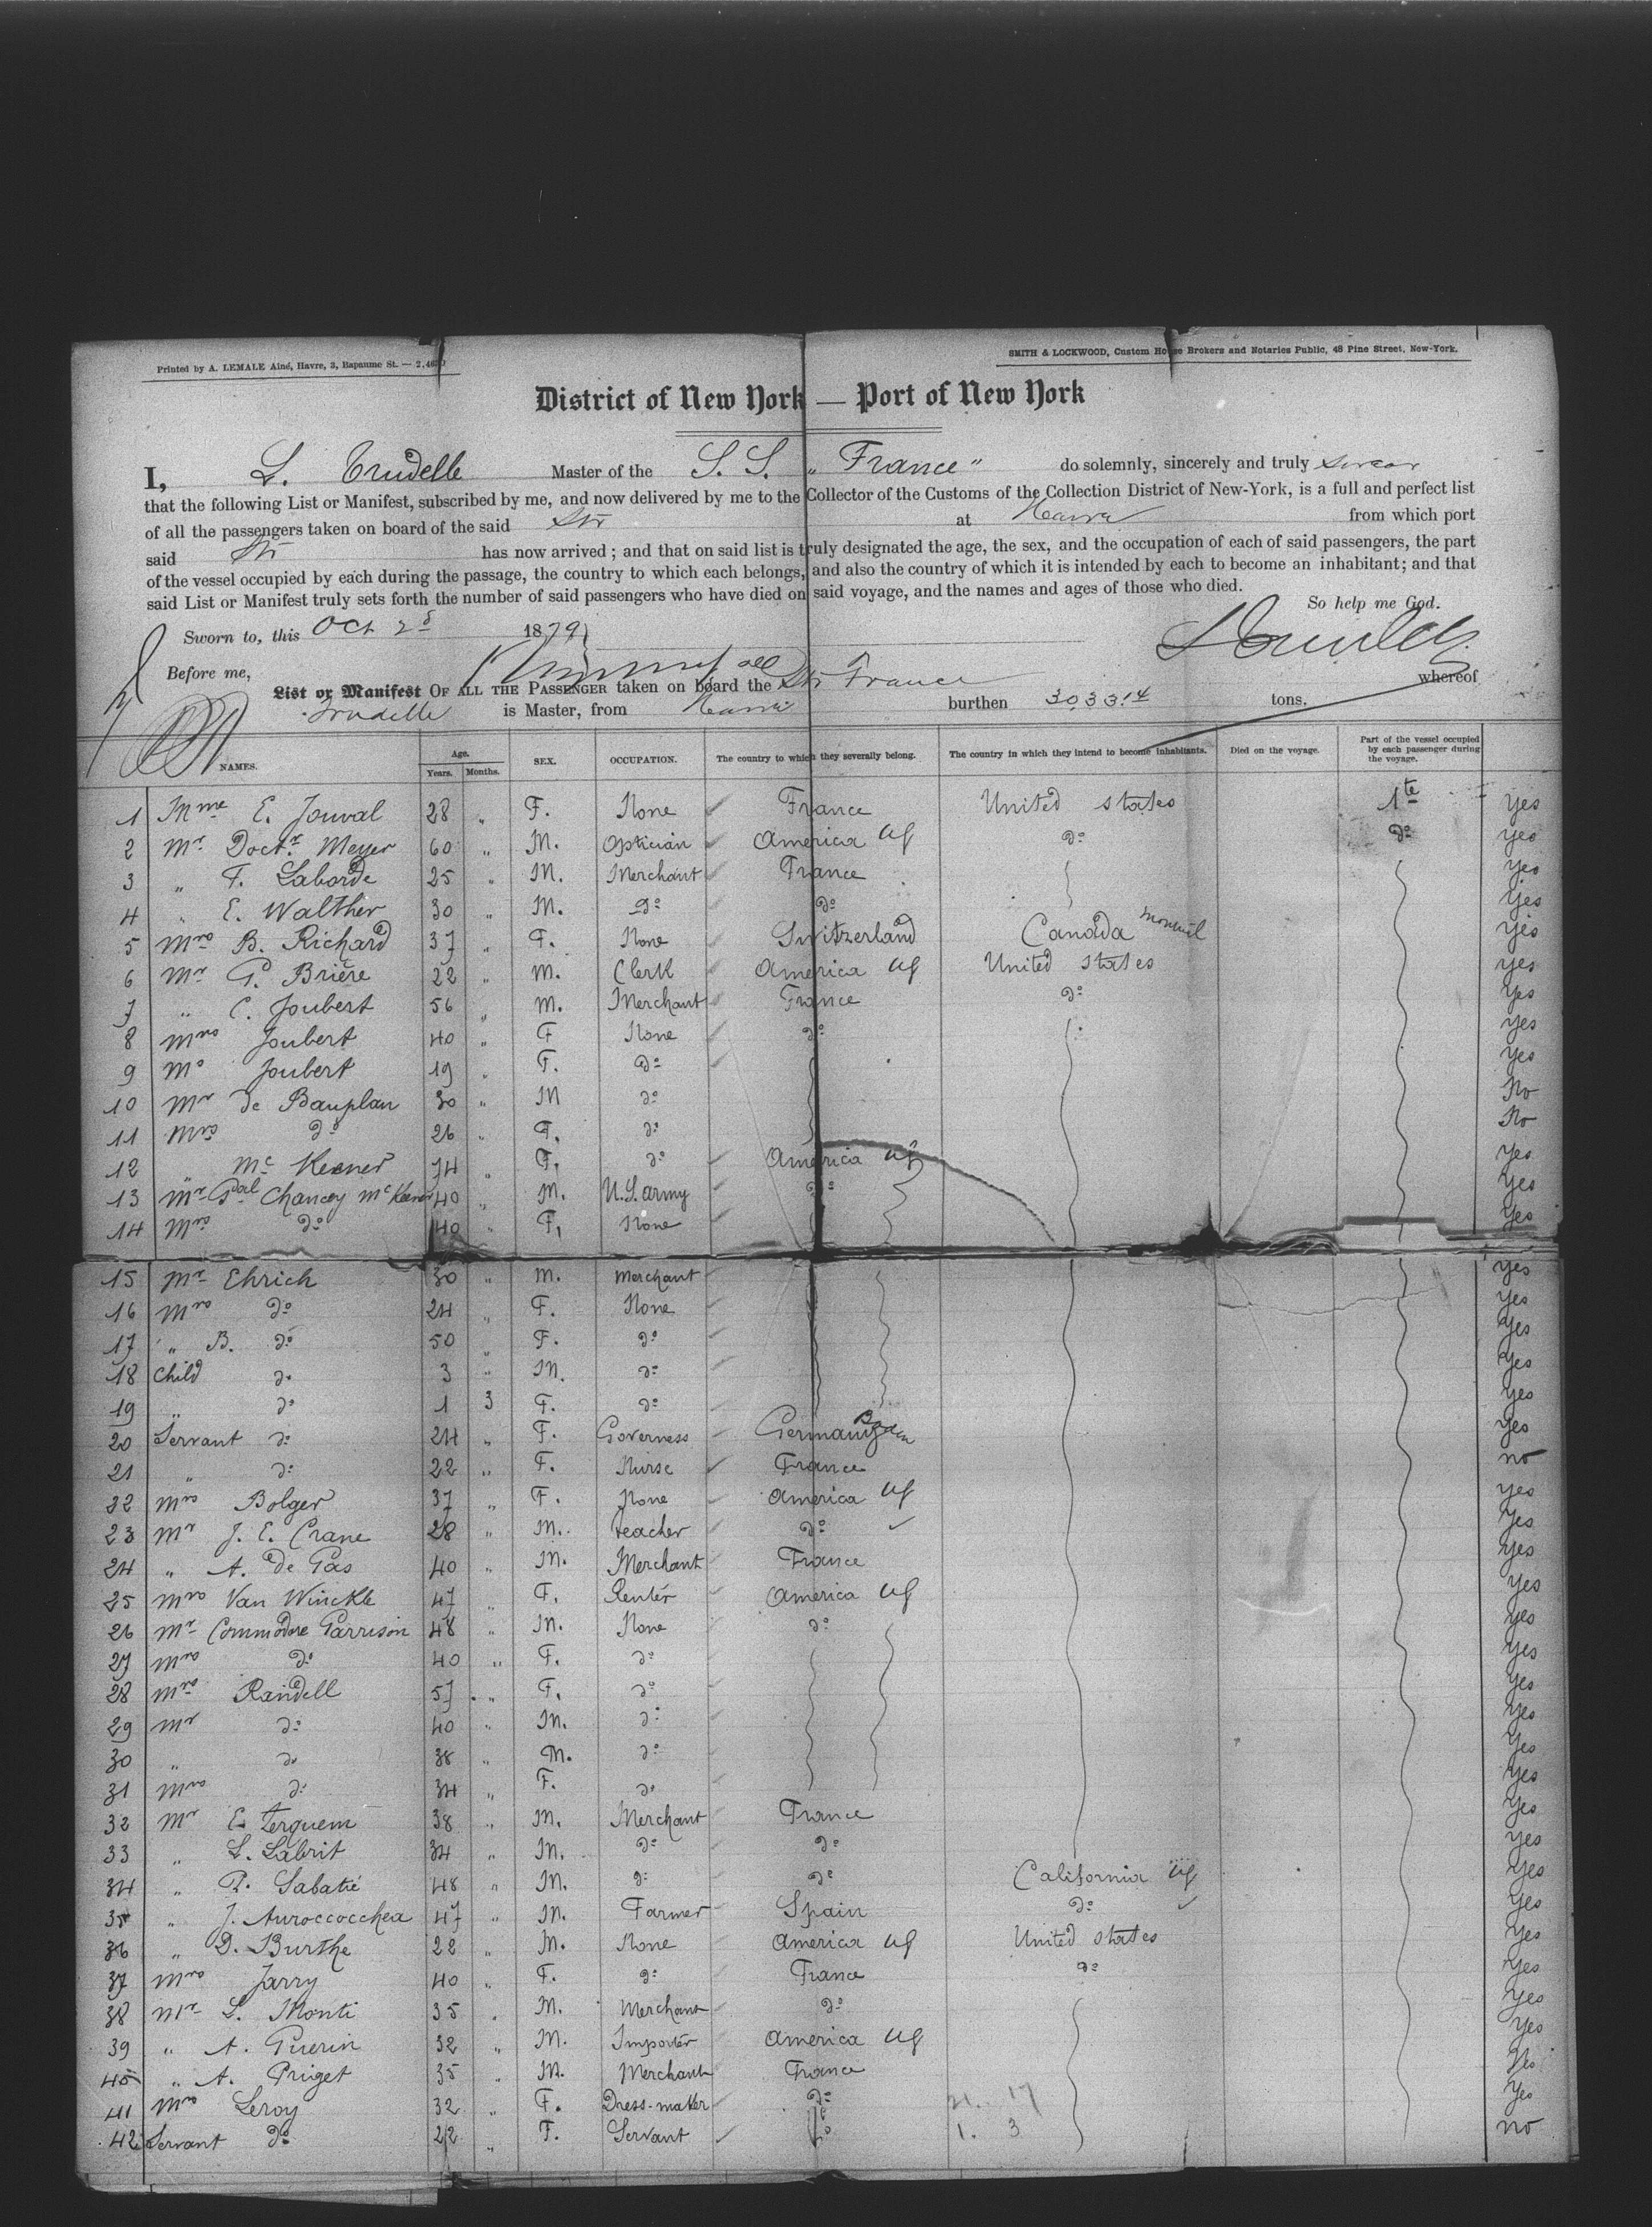 Printed by A. LEMALE Ainé, Havre, 3, Bapaume St. — 2,46
SMITH & LOCKWOOD, Custom House Brokers and Notaries Public, 48 Pine Street, New-York.
District of New York — Port of New York
I, L. Trudelle Master of the S. S. "France" do solemnly, sincerely and truly swear
that the following List or Manifest, subscribed by me, and now delivered by me to the Collector of the Customs of the Collection District of New-York, is a full and perfect list
of all the passengers taken on board of the said Str at Havre from which port
said Str has now arrived; and that on said list is truly designated the age, the sex, and the occupation of each of said passengers, the part
of the vessel occupied by each during the passage, the country to which each belongs, and also the country of which it is intended by each to become an inhabitant; and that
said List or Manifest truly sets forth the number of said passengers who have died on said voyage, and the names and ages of those who died.
So help me God.
Sworn to, this Oct 2d 1879
Before me,
List or Manifest OF ALL THE PASSENGER taken on board the Str France whereof
Trudelle is Master, from Havre burthen 3033.14 tons.
NAMES. Age. Years. Months. SEX. OCCUPATION. The country to which they severally belong. The country in which they intend to become inhabitants. Died on the voyage. Part of the vessel occupied by each passenger during the voyage.
1 Mme E. Jouval 28 " F. None France United States 1te Yes
2 Mr Doctr Meyer 60 " M. Optician America US do do yes
3 " F. Laborde 25 " M. Merchant France yes
4 " E. Walther 30 " M. do do Yes
5 Mrs B. Richard 37 " F. None Switzerland Canada Yes
6 Mr G. Brière 22 " M. Clerk America US United States yes
7 " C. Joubert 56 " M. Merchant France do Yes
8 Mrs Joubert 40 " F None do yes
9 Ms Joubert 19 " F. do Yes
10 Mr de Bauplan 30 " M do No
11 Mrs do 26 " F. do No
12 " Mc Keener 74 " F. do America US Yes
13 Mr Gal Chancey McKeener 40 M. U.S. army do Yes
14 Mrs do 40 " F. None Yes
15 Mr Ehrich 30 " M. Merchant Yes
16 Mrs do 24 " F. None Yes
17 " B. do 50 " F. do Yes
18 Child do 3 " M. do Yes
19 " do 1 3 F. do Yes
20 Servant do 24 " F. Governess Germany Baden Yes
21 " do 22 " F. Nurse France no
22 Mrs Bolger 37 " F. None America US yes
23 Mr J. E. Crane 28 " M. teacher do Yes
24 " A. de Gas 40 " M. Merchant France Yes
25 Mrs Van Winckle 47 " F. Renter America US Yes
26 Mr Commodore Garrison 48 " M. None do Yes
27 Mrs do 40 " F. do Yes
28 Mrs Randell 57 " F. do Yes
29 Mr do 40 " M. do Yes
30 " do 38 " M. do Yes
31 Mrs do 34 " F. do Yes
32 Mr E. Terquem 38 " M. Merchant France Yes
33 " L. Labrit 34 " M. do do Yes
34 " P. Sabatié 48 " M. do do California US Yes
35 " J. Auroccocchea 47 " M. Farmer Spain do Yes
36 " D. Burthe 22 " M. None America US United States Yes
37 Mrs Jarry 40 " F. do France do Yes
38 Mr L. Monti 35 " M. Merchant do Yes
39 " A. Guerin 32 " M. Importer America US Yes
40 " A. Priget 35 " M. Merchant France Yes
41 Mrs Leroy 32 " F. Dress-maker do 21. 17 Yes
42 Servant do 22 " F. Servant do 1. 3 no